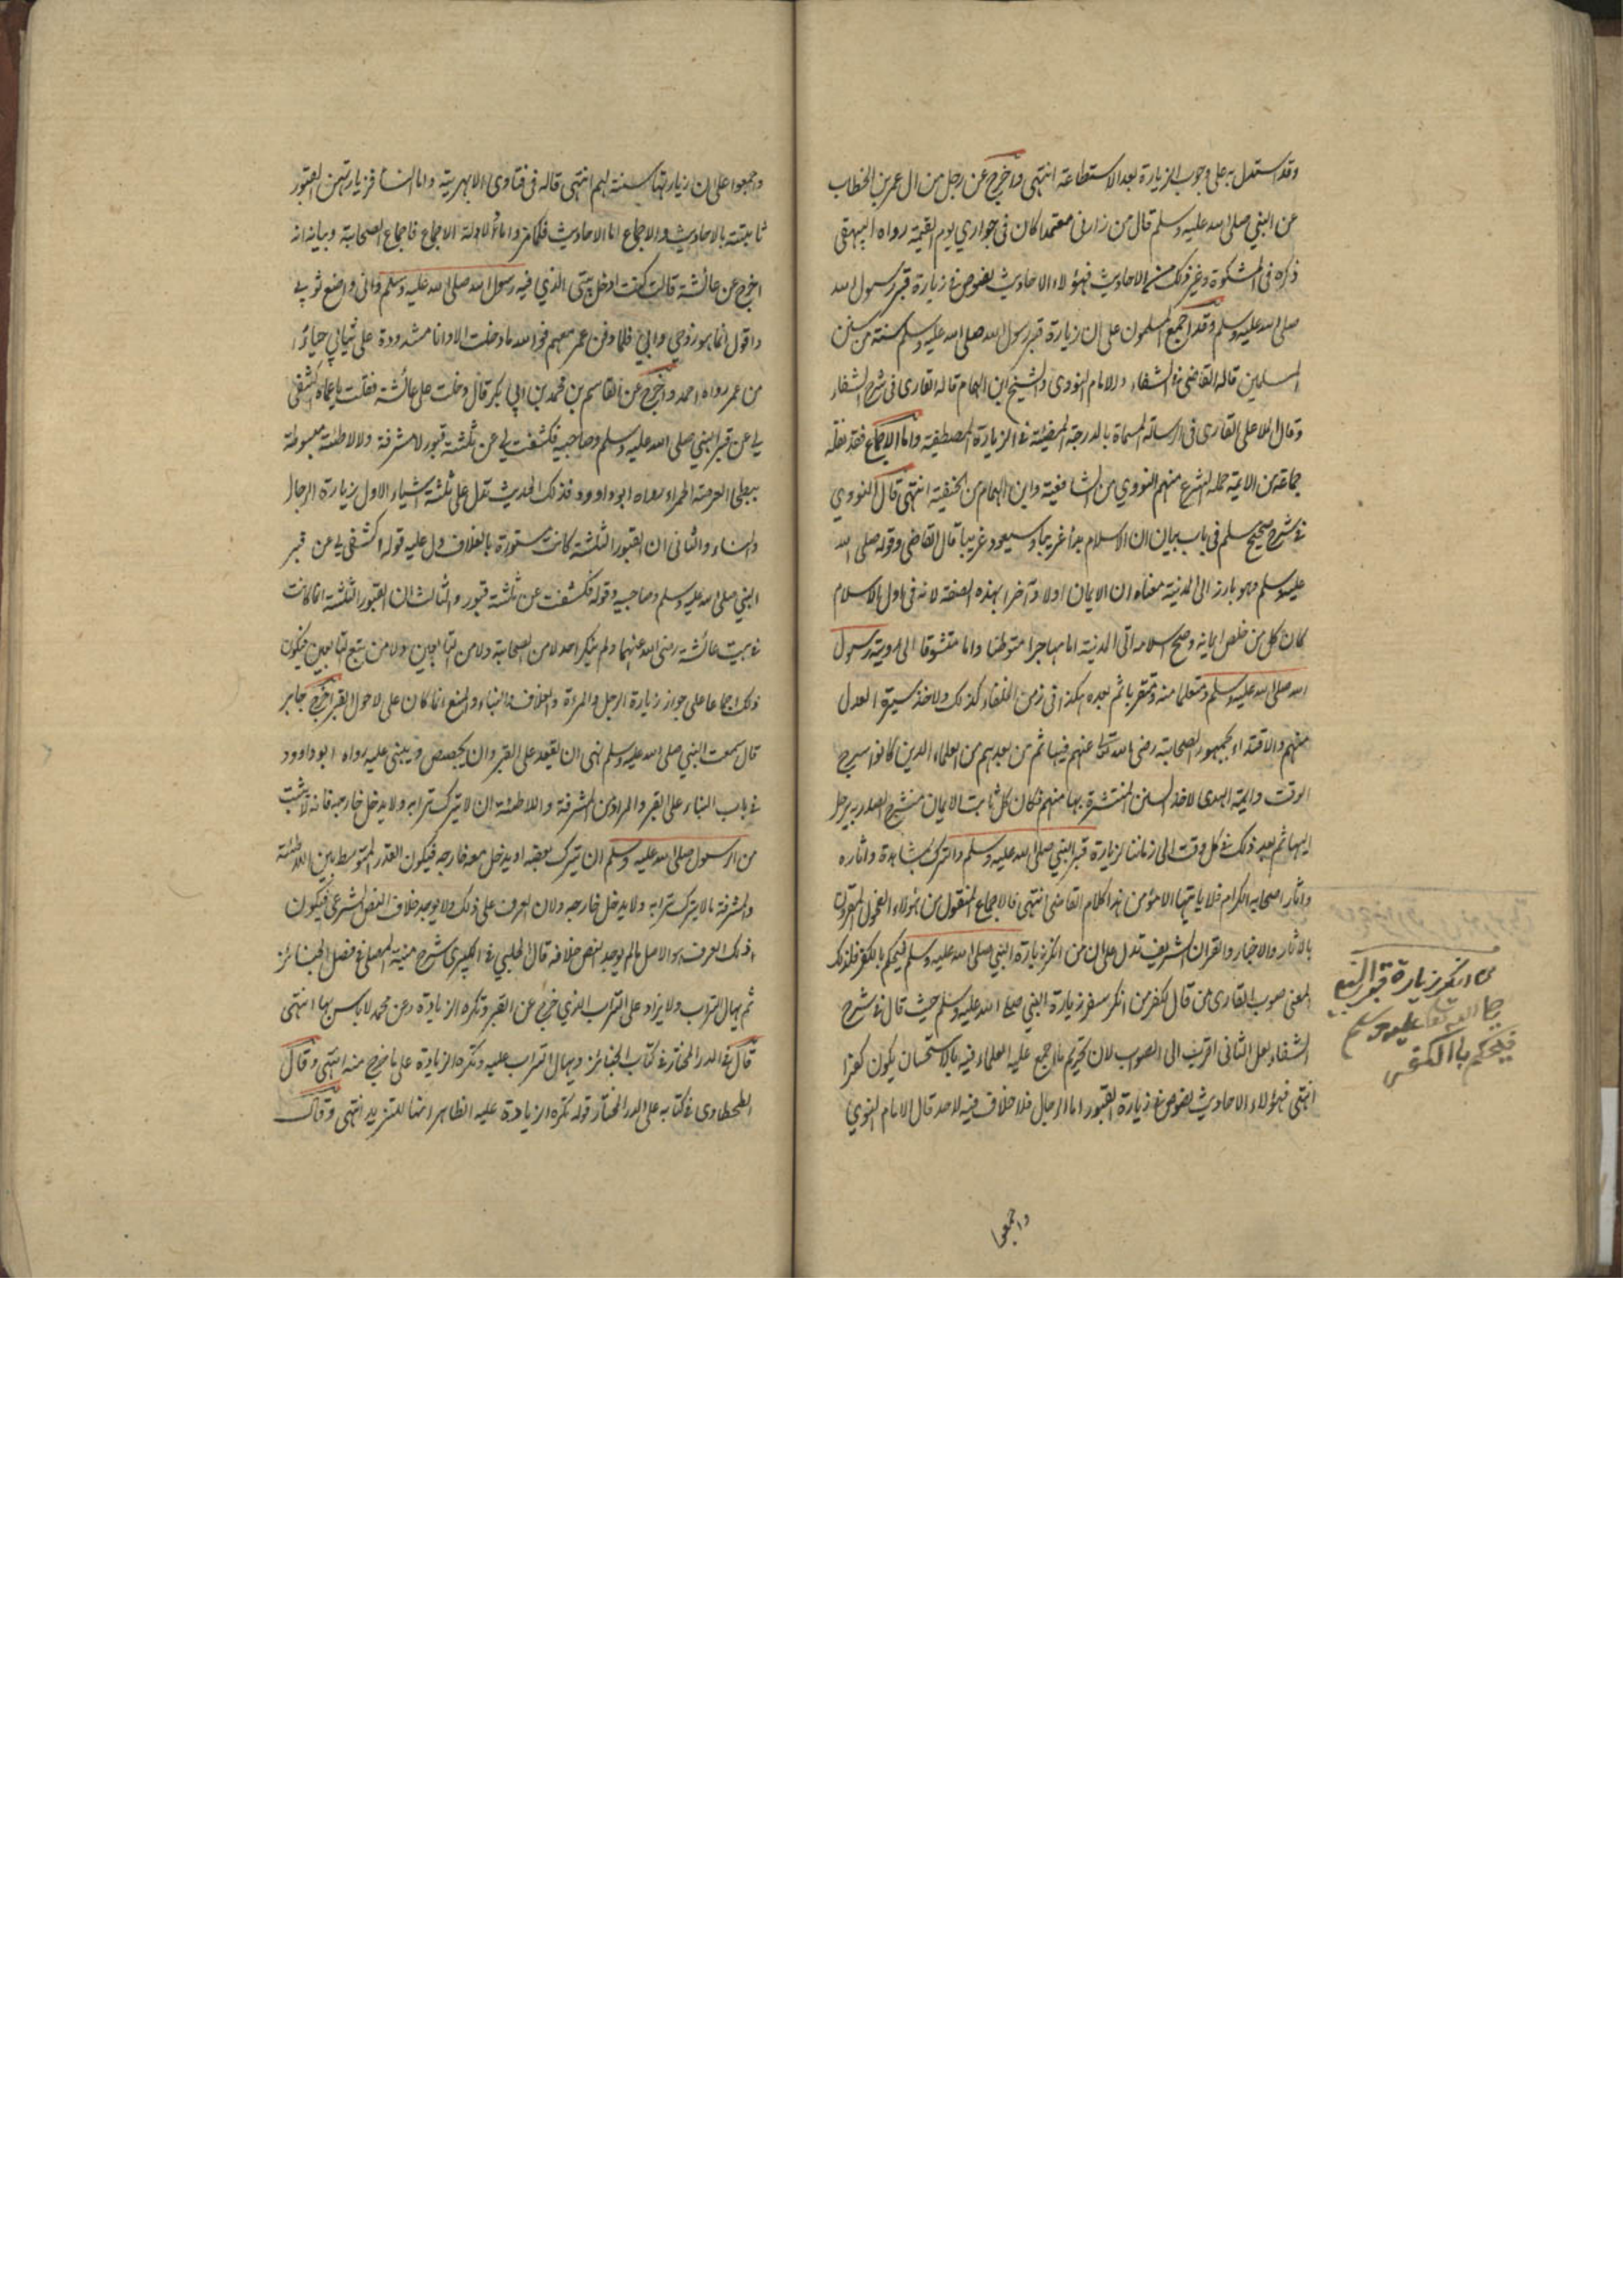 وقد استدل به على وجوب الزيارة بعد الاستطاعة انتهى واخرج عن رجل من ال عمر بن الخطاب
عن النبي صلى الله عليه وسلم قال من زارني معتمدا كان في جواري يوم القيمة رواه البيهقي
ذكره في المشكوة وغير ذلك من الاحاديث فهؤلاء الاحاديث نصوص في زيارة قبر رسول الله
صلى الله عليه وسلم وقد اجمع المسلمون على ان زيارة قبر رسول الله صلى الله عليه وسلم سنة من سنن
المسلمين قاله القاضي في الشفاء والامام النووي والشيخ ابن الهمام قاله القاري في شرح الشفاء
وقال الملا على القاري في الرسالة المسماة بالدرجة المضيئة في الزيارة المصطفية واما الاجماع فقد نقله
جماعة من الايمة حملة الشرع منهم النووي من الشافعية وابن الهمام من الحنفية انتهى قال النووي
في شرح صحيح مسلم في باب بيان ان الاسلام بدأ غريبا وسيعود غريبا قال القاضي وقوله صلى الله
عليه وسلم وهو يارز الى المدينة معناه ان الايمان اولا وآخرا بهذه الصفة لانه في اول الاسلام
كان كل من خلص ايمانه وصح اسلامه اتى المدينة اما مهاجرا متوطنا واما متشوقا الى روية رسول
الله صلى الله عليه وسلم ومتعلما منه ومتقربا ثم بعده هكذا في زمن الخلفاء كذلك ولاخذ سيرة العدل
منهم والاقتداء بجمهور الصحابة رضي الله تعالى عنهم فيها ثم من بعدهم من العلماء الذين كانوا سرج
الوقت وايمة الهدى لاخذ السنن المنتشرة بها منهم فكان كل ثابت الايمان منشرح الصدر به يرحل
اليها ثم بعد ذلك في كل وقت الى زماننا لزيارة قبر النبي صلى الله عليه وسلم والتبرك بمشاهدة واثاره
واثار اصحابه الكرام فلا ياتيها الا مؤمن هذا كلام القاضي انتهى فالاجماع المنقول من هؤلاء الفحول المقرون
بالاثار والاخبار والقران الشريف تدل على ان من انكر زيارة النبي صلى الله عليه وسلم فيحكم بالكفر فلذلك
المعنى صوب القاري من قال بكفر من انكر سفر زيارة النبي صلى الله عليه وسلم حيث قال في شرح
الشفاء لعل الثاني اقرب الى الصوب لان تحريم ما اجمع عليه العلماء فيه بالاستحسان يكون كفرا
انتهى فهؤلاء الاحاديث نصوص في زيارة القبور اما الرجال فلا خلاف فيه لاحد قال الامام النووي
من انكر زيارة قبر النبي
صلى الله تعالى عليه وسلم
فيحكم باالكفر
واجمعوا
واجمعوا على ان زيارتها سنة لهم انتهى قاله في فتاوى الابهرية واما النسا فزيارتهن القبور
ثابتة بالاحاديث والاجماع اما الاحاديث فكما مر واما الادلة الاجماع فاجماع الصحابة وبيانه انه
اخرج عن عائشة قالت كنت ادخل بيتي الذي فيه رسول الله صلى الله عليه وسلم واني واضع ثوبي
واقول انما هو زوجي وابي فلما دفن عمر معهم فوالله ما دخلت الا وانا مشدودة على ثيابي حياء
من عمر رواه احمد واخرج عن القاسم بن محمد بن ابي بكر قال دخلت على عائشة فقلت يا عماه اكشفي
لي عن قبر النبي صلى الله عليه وسلم وصاحبيه فكشفت لي عن ثلثة قبور لا مشرفة ولا لاطئة مبسوطة
ببطحا العرصة الحمراء رواه ابو داوود فذلك الحديث تدل على ثلثة اشياء الاول زيارة الرجال
والنساء والثاني ان القبور الثلثة كانت مستورة بالغلاف دل عليه قوله اكشفي لي عن قبر
النبي صلى الله عليه وسلم وصاحبيه وقوله فكشفت عن ثلثة قبور والثالث ان القبور الثلثة انما كانت
في بيت عائشة رضي الله عنهما ولم ينكر احد لا من الصحابة ولا من التابعين ولا من تبع التابعين فيكون
ذلك اجماعا على جواز زيارة الرجل والمرءة والغلاف والبناء والمنع انما كان على لاحول القبر اخرج جابر
قال سمعت النبي صلى الله عليه وسلم نهى ان يقعد على القبر وان يجصص ويبنى عليه رواه ابو داوود
في باب البناء على القبر والمراد من المشرفة واللاطئة ان لا يترك ترابه ولا يدخل خارجه فانه لا يثبت
من الرسول صلى الله عليه وسلم ان يترك بعضه او يدخل معه خارجه فيكون القدر المتوسط بين اللاطئة
والمشرفة ما لا يترك ترابه ولا يدخل خارجه ولان العرف على ذلك ولا يوجد خلاف النص الشرعي فيكون
ذلك العرف هو الاصل ما لم يوجد النص خلافه قال الحلبي في الكبيري شرح منية المصلي في فصل الجنائز
ثم يهال التراب ولا يزاد على التراب الذي خرج عن القبر وتكره الزيادة وعن محمد لا باس بها انتهى
قال في الدر المختار في كتاب الجنائز ويهال التراب عليه وتكره الزيادة على ما خرج منه انتهى وقال
الطحطاوي في كتابه على الدر المختار قوله تكره الزيادة عليه الظاهر انها للتنزيه انتهى وقال